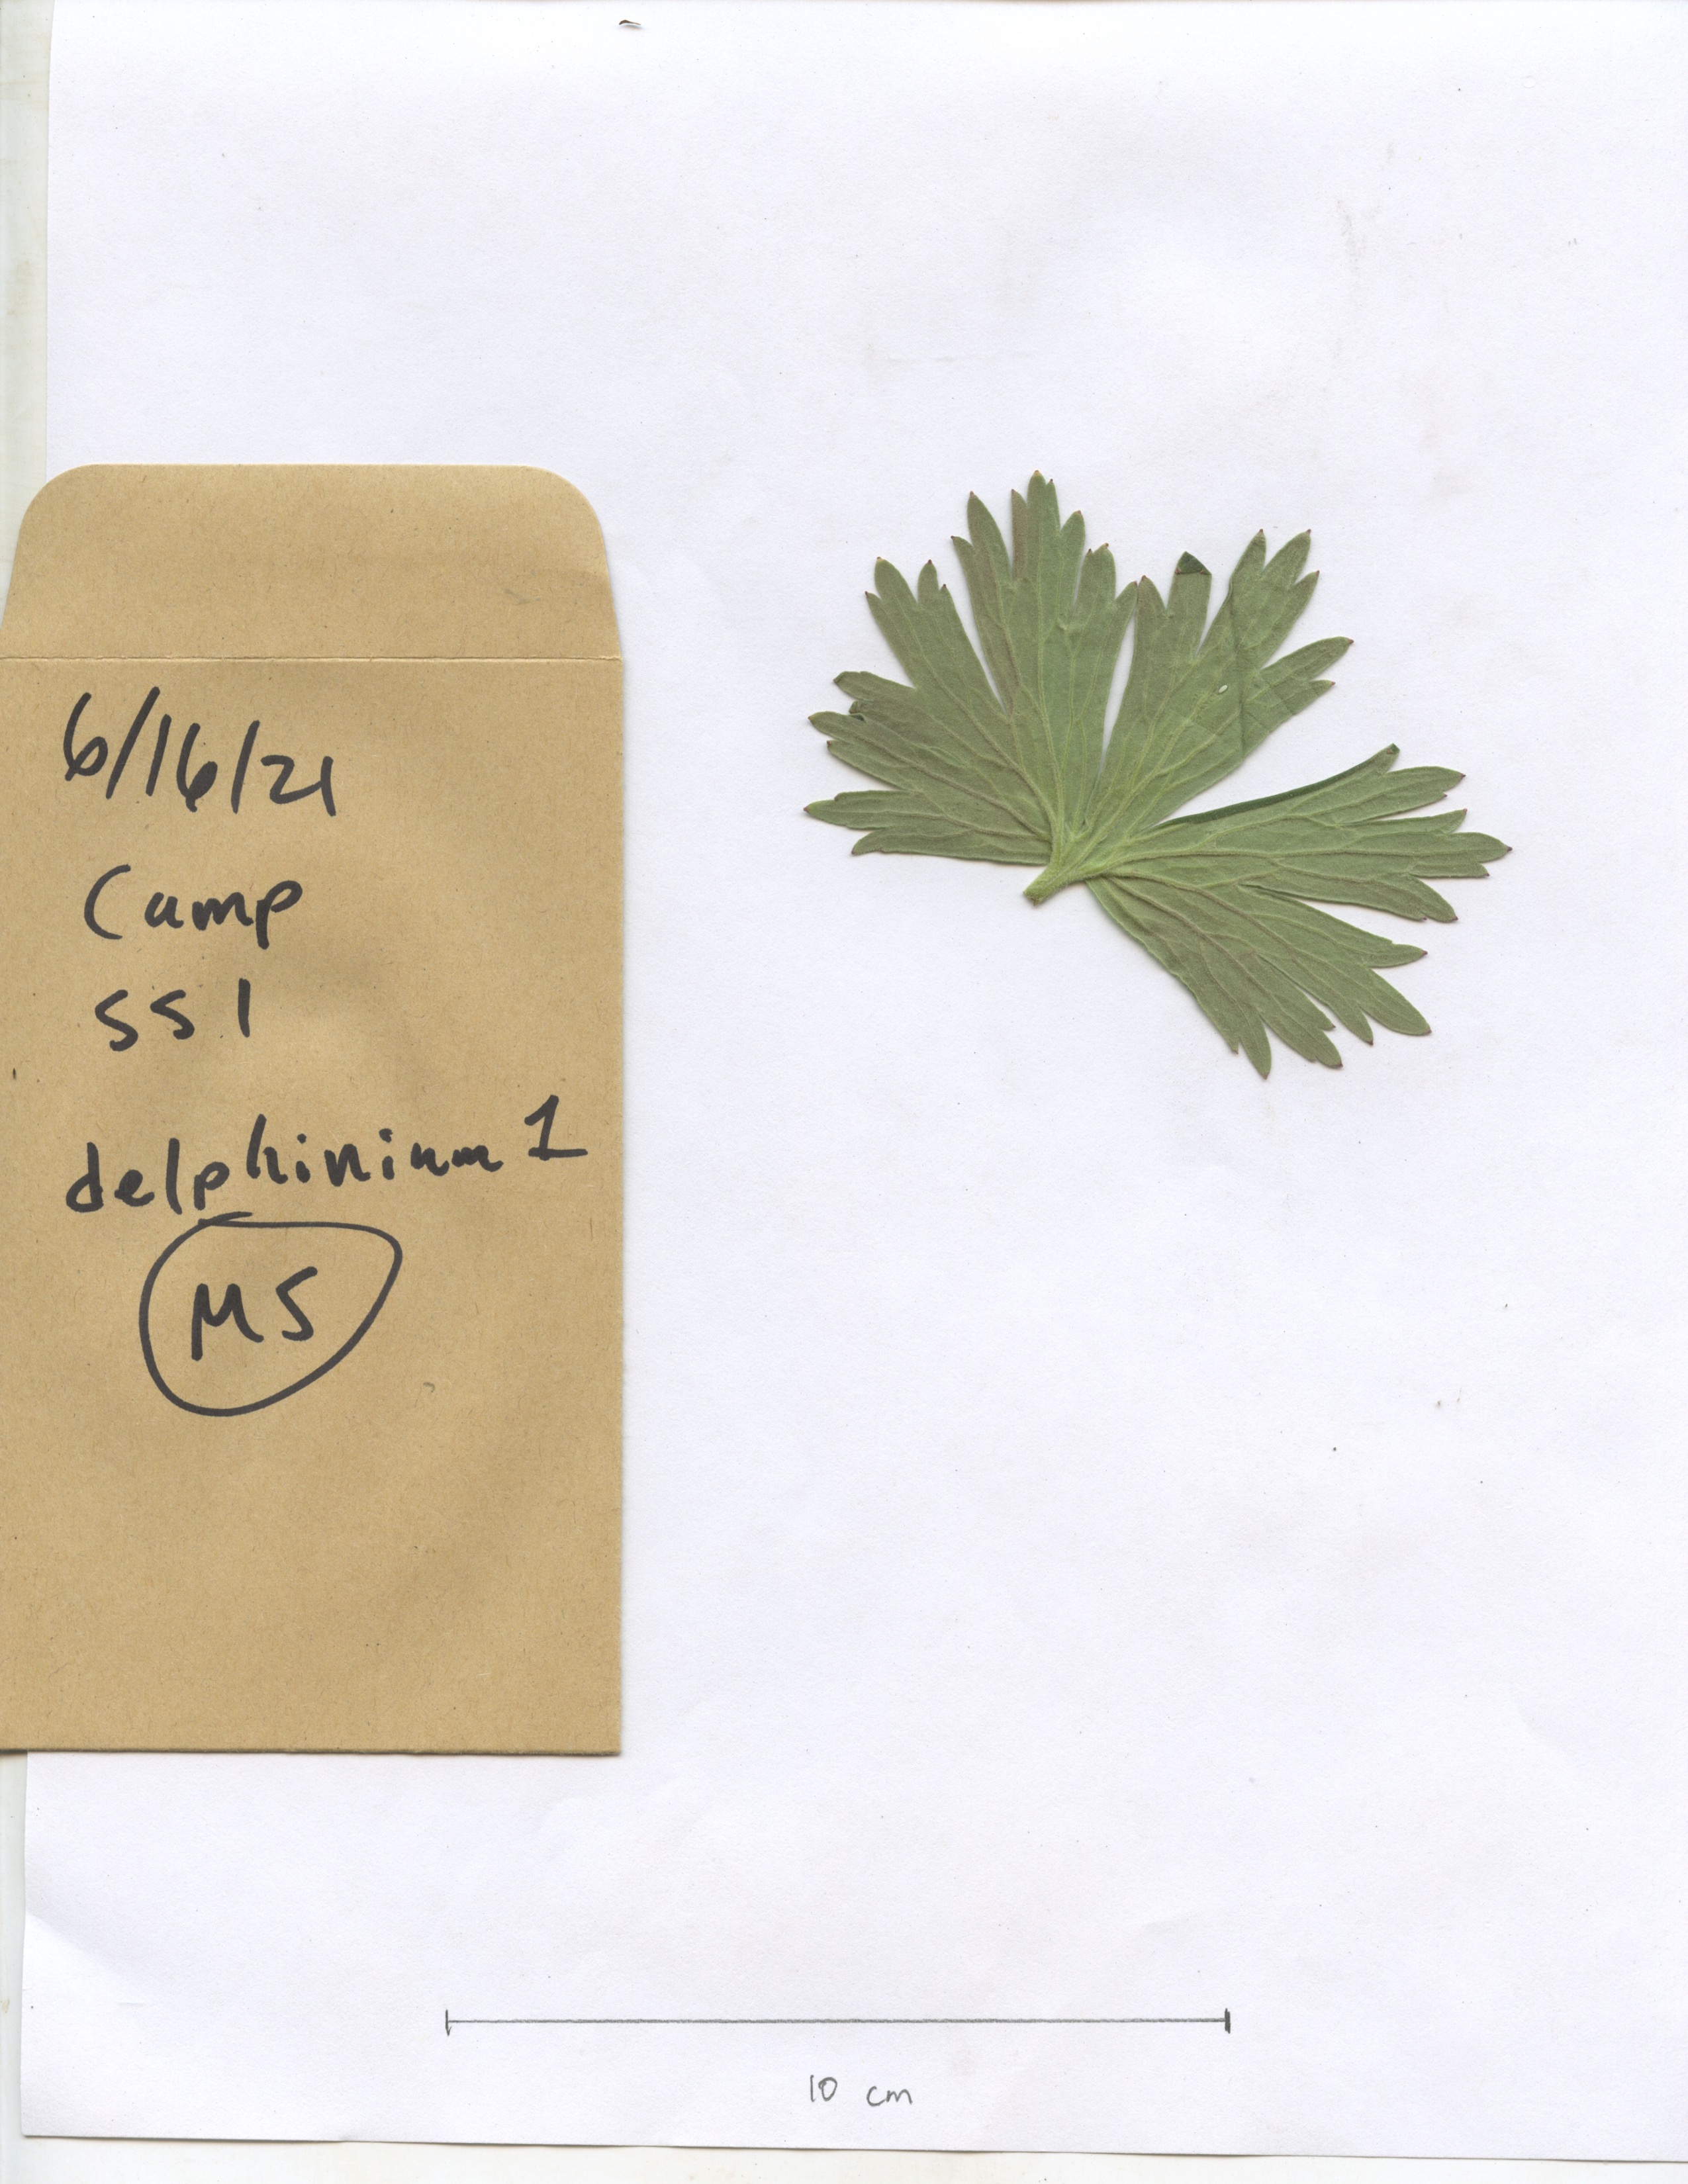 6/16/21
Camp
SS1
delphinium 1
MS
10 cm